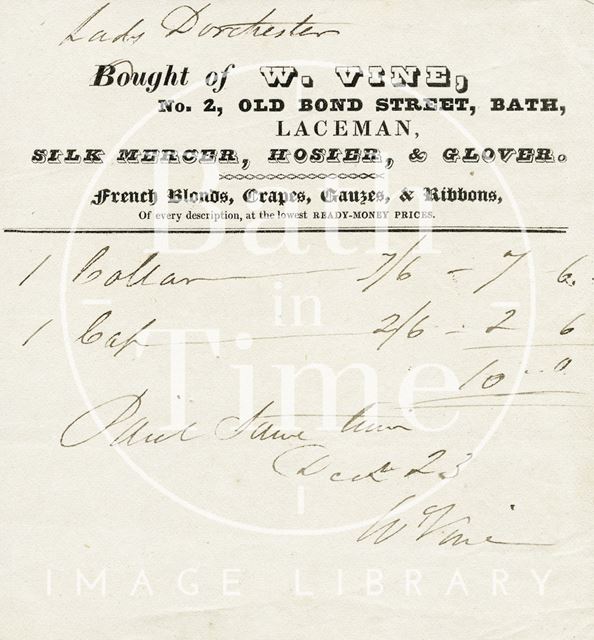 Lady Dorchester
Bought of W. VINE,
No. 2, OLD BOND STREET, BATH,
LACEMAN,
SILK MERCER, HOSIER, & GLOVER.
French Blonds, Crapes, Gauzes, & Ribbons,
Of every description, at the lowest READY-MONEY PRICES.
1 Collar 7/6 - 7 6.
1 Cap 2/6 - 2 6
10 - 0
Paid Same time
Decr 23
W Vine
Bath
in
Time
IMAGE LIBRARY